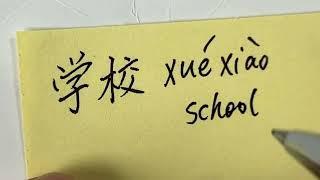 学校 xué xiào
school